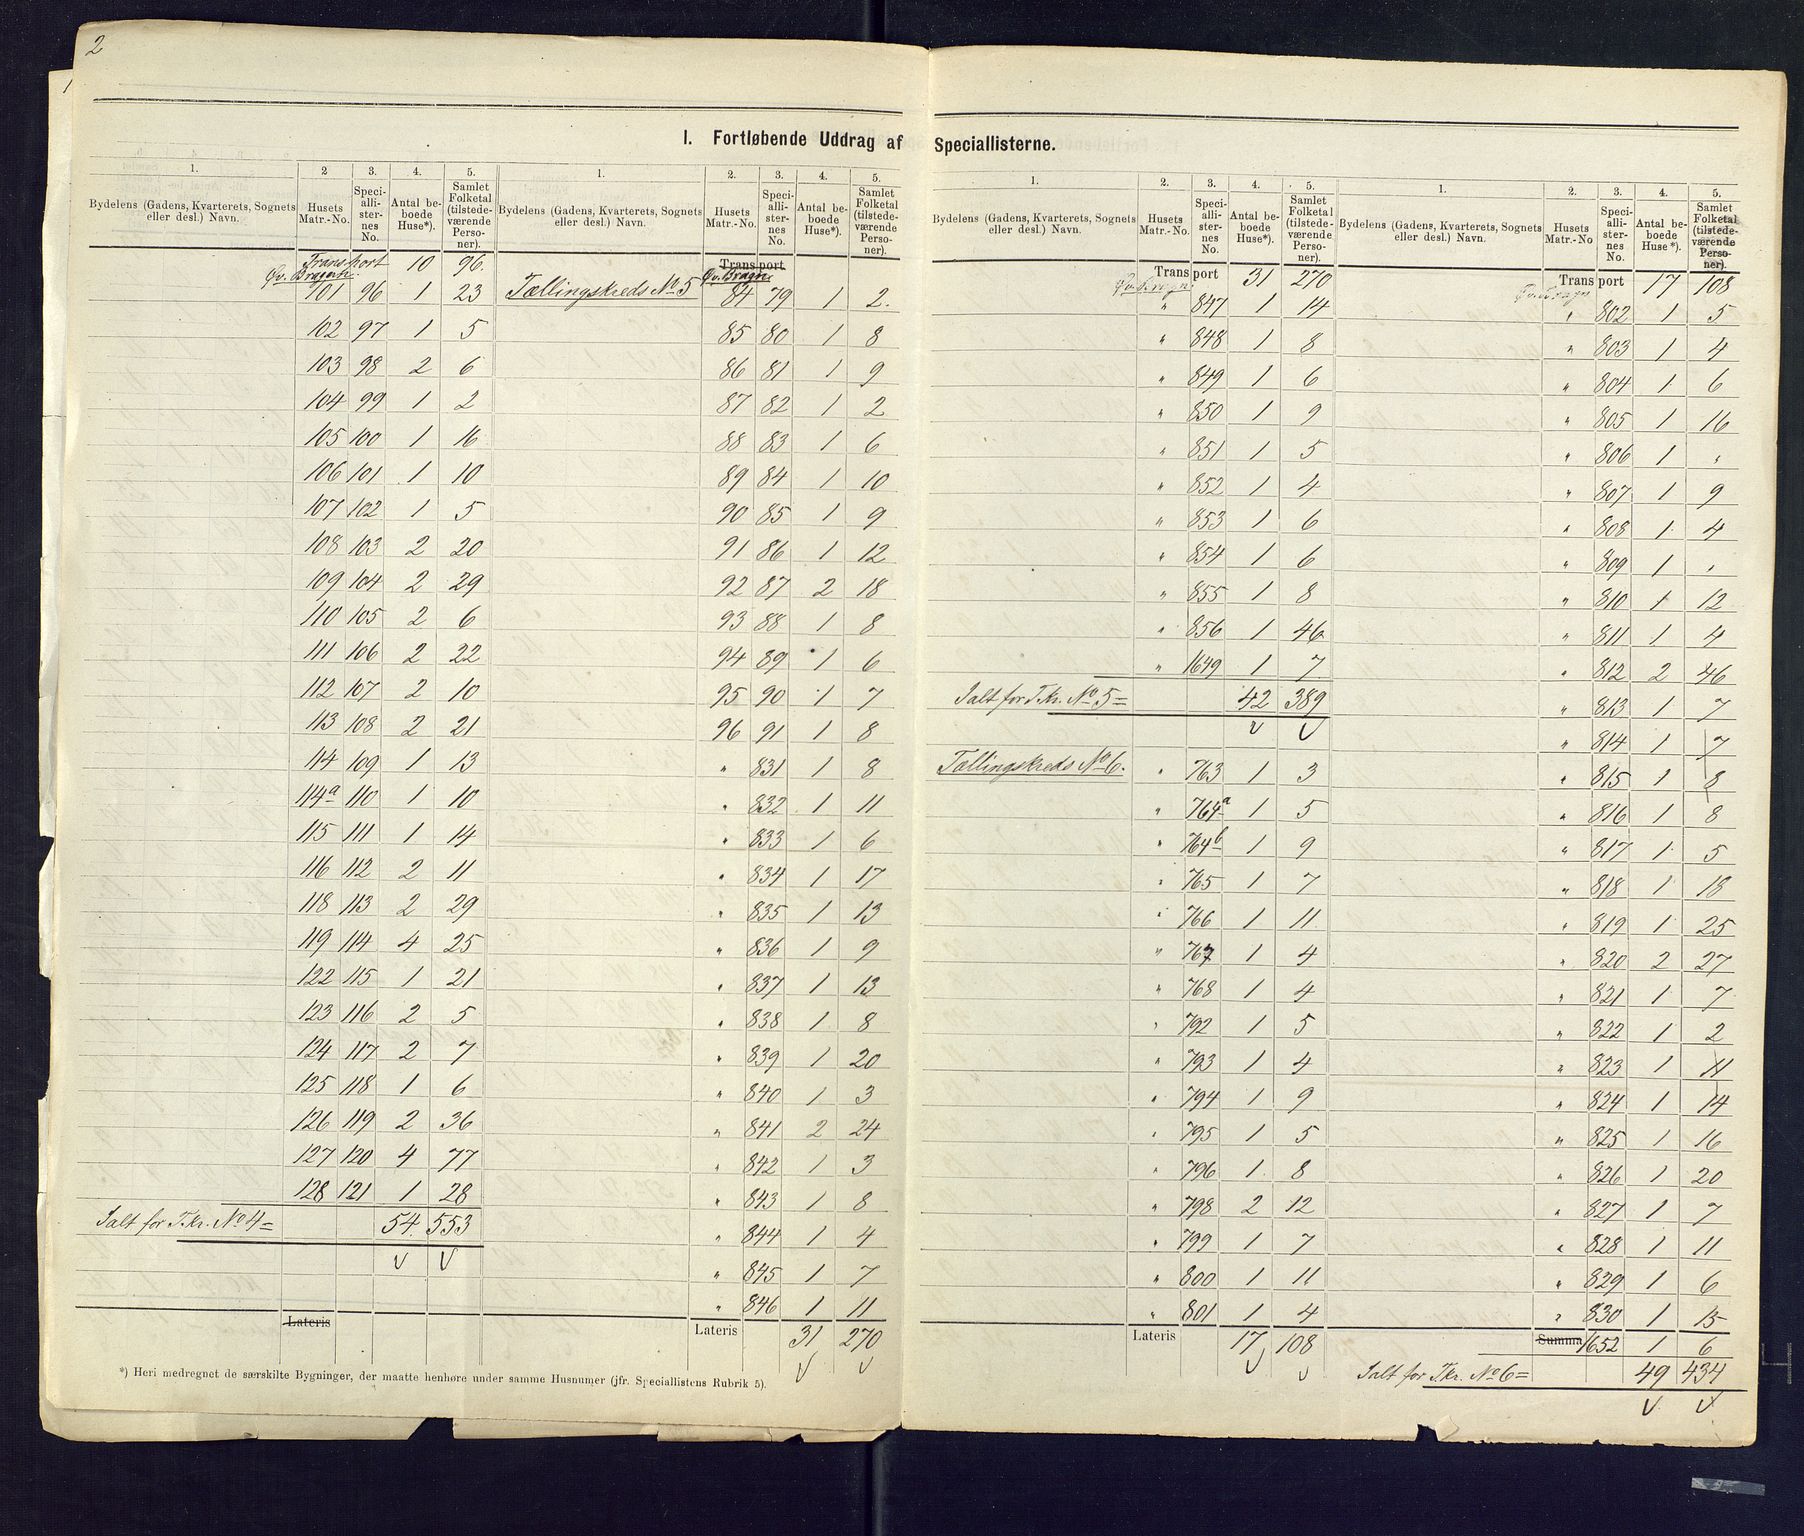 2
I. Fortløbende Uddrag af Speciallisterne.
1. 2 3. 4. 5.
Bydelens (Gadens, Kvarterets, Sognets eller desl.) Navn. Husets Matr.-No. Speciallisternes No. Antal beboede Huse*). Samlet Folketal (tilstedeværende Personer).
Transport 10 96
Øv. Bragn.
101 96 1 23
102 97 1 5
103 98 2 6
104 99 1 2
105 100 1 16
106 101 1 10
107 102 1 5
108 103 2 20
109 104 2 29
110 105 2 6
111 106 2 22
112 107 2 10
113 108 2 21
114 109 1 13
114a 110 1 10
115 111 1 14
116 112 2 11
118 113 2 29
119 114 4 25
122 115 1 21
123 116 2 5
124 117 2 7
125 118 1 6
126 119 2 36
127 120 4 77
128 121 1 28
Ialt for T.Kr. No 4 = 54. 553
Lateris
1. 2. 3. 4. 5.
Bydelens (Gadens, Kvarterets, Sognets eller desl.) Navn. Husets Matr.-No. Speciallisternes No. Antal beboede Huse*). Samlet Folketal (tilstedeværende Personer).
Transport
Øv. Bragn.
Tællingskreds No 5 84 79 1 2.
85 80 1 8
86 81 1 9
87 82 1 2
88 83 1 6
89 84 1 10
90 85 1 9
91 86 1 12
92 87 2 18
93 88 1 8
94 89 1 6
95 90 1 7
96 91 1 8
" 831 1 8
" 832 1 11
" 833 1 6
" 834 1 17
" 835 1 13
" 836 1 9
" 837 1 13
" 838 1 8
" 839 1 20
" 840 1 3
" 841 2 24
" 842 1 3
" 843 1 8
" 844 1 4
" 845 1 7
" 846 1 11
Lateris 31 270
*) Heri medregnet de særskilte Bygninger, der maatte henhøre under samme Husnumer (jfr. Speciallistens Rubrik 5).
1. 2. 3. 4. 5.
Bydelens (Gadens, Kvarterets, Sognets eller desl.) Navn. Husets Matr.-No. Speciallisternes No. Antal beboede Huse*). Samlet Folketal (tilstedeværende Personer).
Transport 31 270
Øv. Bragn.
" 847 1 14
" 848 1 8
" 849 1 6
" 850 1 9
" 851 1 5
" 852 1 4
" 853 1 6
" 854 1 6
" 855 1 8
" 856 1 46
" 1649 1 7
Ialt for T.Kr. No 5 = 42 389
Tællingskreds No 6. " 763 1 3
" 764a 1 5
" 764b 1 9
" 765 1 7
" 766 1 11
" 767 1 4
" 768 1 4
" 792 1 5
" 793 1 4
" 794 1 9
" 795 1 5
" 796 1 8
" 798 2 12
" 799 1 7
" 800 1 11
" 801 1 4
Lateris 17 108
1. 2. 3. 4. 5.
Bydelens (Gadens, Kvarterets, Sognets eller desl.) Navn. Husets Matr.-No. Speciallisternes No. Antal beboede Huse*). Samlet Folketal (tilstedeværende Personer).
Transport 17 108
Øv. Bragn
" 802 1 5
" 803 1 4
" 804 1 6
" 805 1 16
" 806 1 "
" 807 1 9
" 808 1 4
" 809 1 "
" 810 1 12
" 811 1 4
" 812 2 46
" 813 1 7
" 814 1 7
" 815 1 8
" 816 1 8
" 817 1 5
" 818 1 18
" 819 1 25
" 820 2 27
" 821 1 7
" 822 1 2
" 823 1 11
" 824 1 14
" 825 1 16
" 826 1 20
" 827 1 7
" 828 1 11
" 829 1 6
" 830 1 15
Summa 1652 1 6
Ialt for T.Kr. No 6 = 49 434